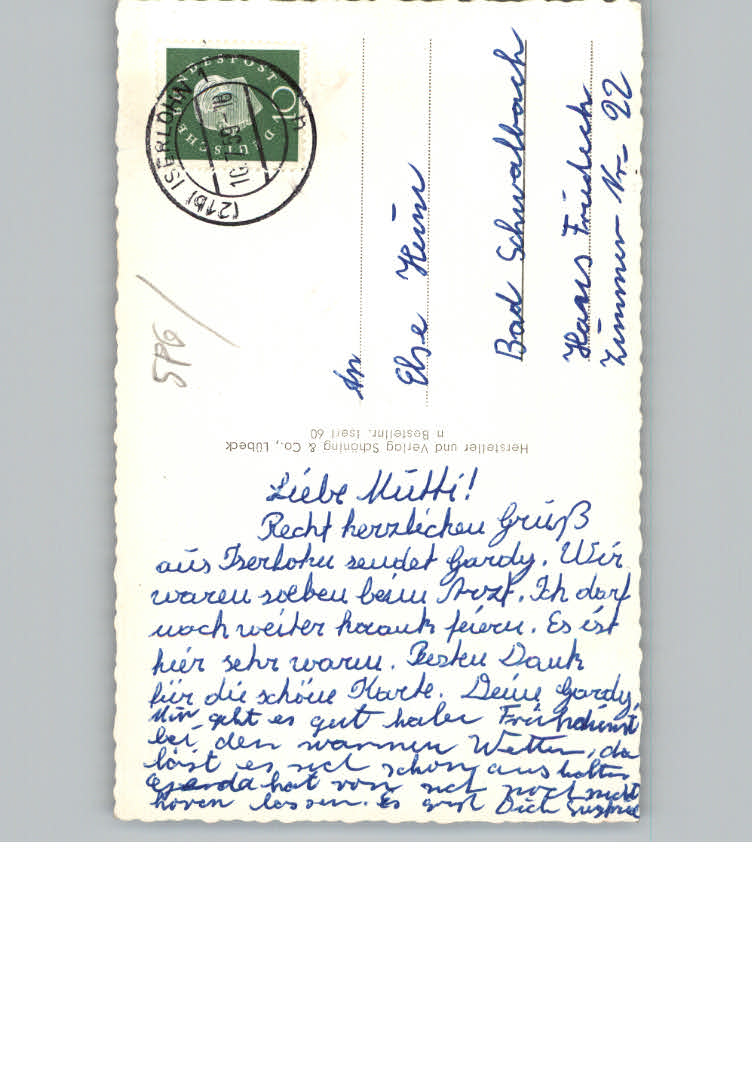 DEUTSCHE BUNDESPOST
10
(21b) ISERLOHN 1
10.7.59-16
h
An
Else Heim
Bad Schwalbach
Haus Friedech
Zimmer Nr. 22
Hersteller und Verlag Schöning & Co., Lübeck
n Bestellnr. Iserl 60
Liebe Mutti!
Recht herzlichen Gruß
aus Iserlohn sendet Gardy. Wir
waren soeben beim Arzt. Ich darf
noch weiter krank feiern. Es ist
hier sehr warm. Besten Dank
für die schöne Karte. Deine Gardy,
Mir geht es gut habe Frühdienst
bei den warmen Wetter, da
läst es sich schon aushalten
hat von sich noch nicht
hören lassen. Es grüst Dich